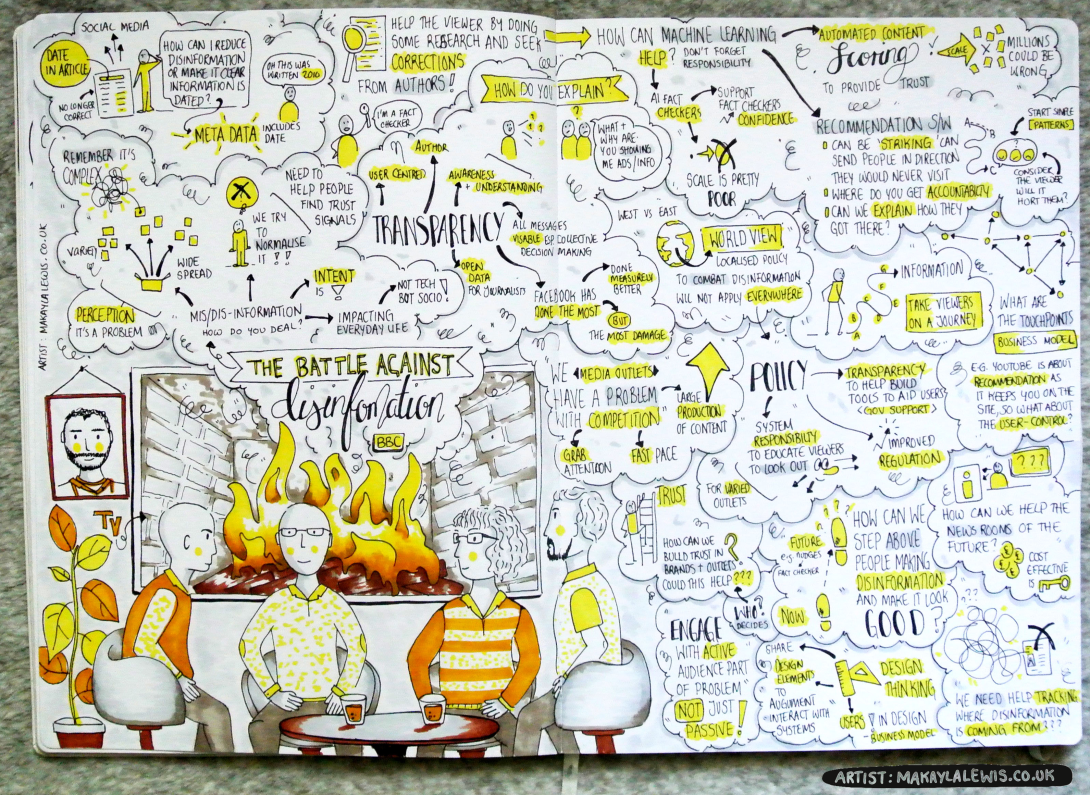 SOCIAL MEDIA
DATE
IN ARTICLE
NO LONGER
CORRECT
HOW CAN I REDUCE
DISINFORMATION
OR MAKE IT CLEAR
INFORMATION IS
DATED?
OH THIS WAS
WRITTEN 2010
META DATA INCLUDES
DATE
HELP THE VIEWER BY DOING
SOME RESEARCH AND SEEK
CORRECTIONS
FROM AUTHORS!
I'M A FACT
CHECKER
HOW DO YOU EXPLAIN?
?
WHAT +
WHY ARE
YOU SHOWING
ME ADS/INFO
HOW CAN MACHINE LEARNING
HELP?
DON'T FORGET
RESPONSIBILITY
AI FACT
CHECKERS
SUPPORT
FACT CHECKERS
CONFIDENCE
SCALE IS PRETTY
POOR
AUTOMATED CONTENT
Scoring
TO PROVIDE TRUST
SCALE
MILLIONS
COULD BE
WRONG
RECOMMENDATION S/W
CAN BE 'STRIKING' CAN
SEND PEOPLE IN DIRECTION
THEY WOULD NEVER VISIT
WHERE DO YOU GET ACCOUNTABILITY
CAN WE EXPLAIN HOW THEY
GOT THERE?
A
B
START SIMPLE
PATTERNS
CONSIDER
THE VIEWER
WILL IT
HURT THEM?
REMEMBER IT'S
COMPLEX
VARIED
WIDE
SPREAD
PERCEPTION
IT'S A PROBLEM
NEED TO
HELP PEOPLE
FIND TRUST
SIGNALS
WE TRY
TO
NORMALISE
IT!!
INTENT
IS !
MIS/DIS-INFORMATION
HOW DO YOU DEAL?
IMPACTING
EVERYDAY LIFE
NOT TECH
BOT SOCIO!
AUTHOR
USER CENTRED
AWARENESS
+ UNDERSTANDING
TRANSPARENCY
ALL MESSAGES
VISABLE ESP COLLECTIVE
DECISION MAKING
OPEN
DATA
FOR JOURNALISTS
WEST VS EAST
WORLD VIEW
LOCALISED POLICY
TO COMBAT DISINFORMATION
WILL NOT APPLY EVERYWHERE
FACEBOOK HAS
DONE THE MOST
DONE
MEASURELY
BETTER
BUT
THE MOST DAMAGE
INFORMATION
TAKE VIEWERS
ON A JOURNEY
WHAT ARE
THE TOUCHPOINTS
BUSINESS MODEL
E.G. YOUTUBE IS ABOUT
RECOMMENDATION AS
IT KEEPS YOU ON THE
SITE, SO WHAT ABOUT
THE USER-CONTROL?
THE BATTLE AGAINST
disinfomation
BBC
TV
WE MEDIA OUTLETS
HAVE A PROBLEM
WITH COMPETITION"
GRAB
ATTENTION
FAST PACE
LARGE
PRODUCTION
OF CONTENT
POLICY
TRANSPARENCY
TO HELP BUILD
TOOLS TO AID USERS
<GOV SUPPORT>
SYSTEM
RESPONSIBILITY
TO EDUCATE VIEWERS
TO LOOK OUT
IMPROVED
REGULATION
FOR VARIED
OUTLETS
TRUST
HOW CAN WE
BUILD TRUST IN
BRANDS + OUTLETS
COULD THIS HELP ???
?
WHO?
DECIDES
FUTURE
e.g. NUDGES
FACT CHECKER
NOW
HOW CAN WE
STEP ABOVE
PEOPLE MAKING
DISINFORMATION
AND MAKE IT LOOK
GOOD?
???
HOW CAN WE HELP THE
NEWS ROOMS OF THE
FUTURE?
COST
EFFECTIVE
IS
ENGAGE
WITH ACTIVE
AUDIENCE PART
OF PROBLEM"
NOT JUST
PASSIVE!
SHARE
DESIGN
ELEMENTS
TO
AUGUMENT
INTERACT WITH
SYSTEMS
DESIGN
THINKING
USERS ! IN DESIGN
- BUSINESS MODEL
???
WE NEED HELP TRACKING
WHERE DISINFORMATION
IS COMING FROM???
ARTIST: MAKAYLALEWIS.CO.UK
ARTIST: MAKAYLALEWIS.CO.UK